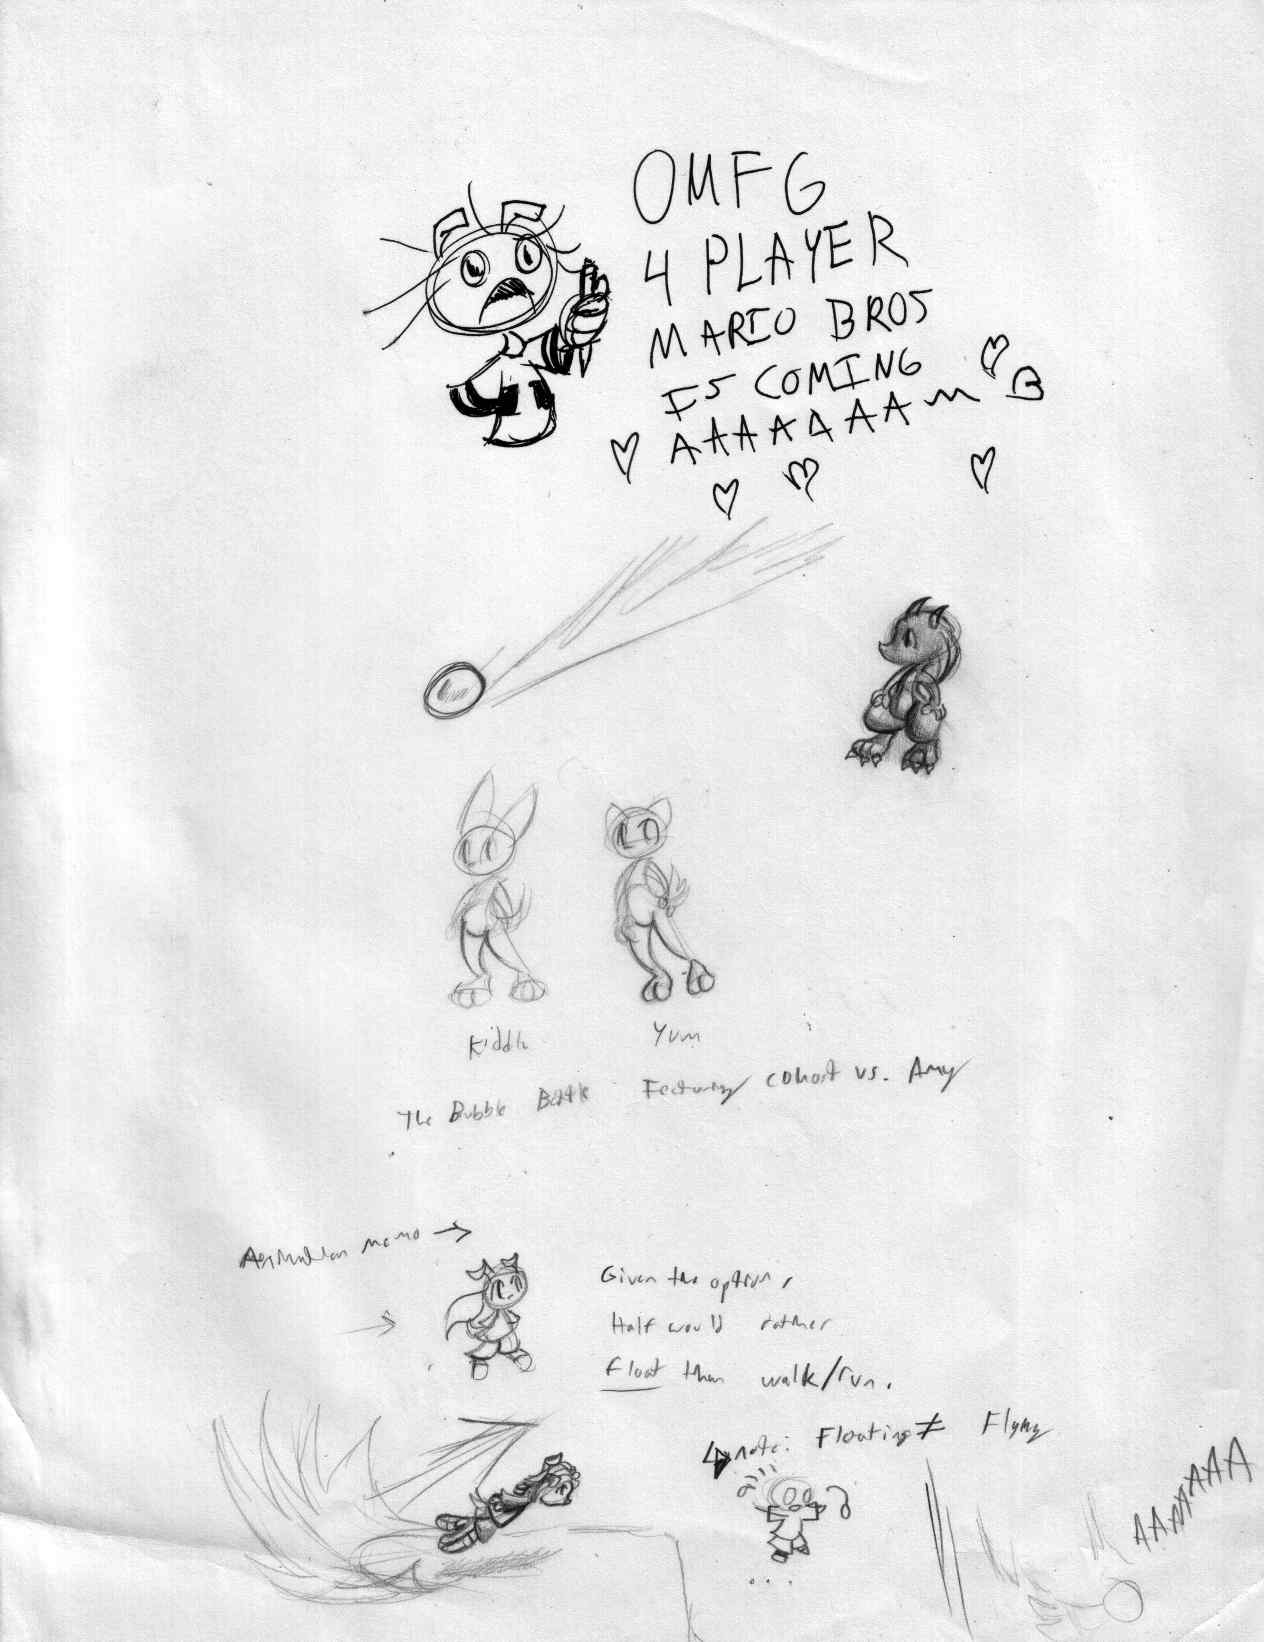 OMFG
4 PLAYER
MARIO BROS
IS COMING
AAAAAAA
Kiddh
Yum
The Bubble Battle Featuring Cohost vs. Amy
Animation memo →
Given the option,
Half would rather
Float than walk/run.
note: Floating ≠ Flying
...
AAAAAAAA